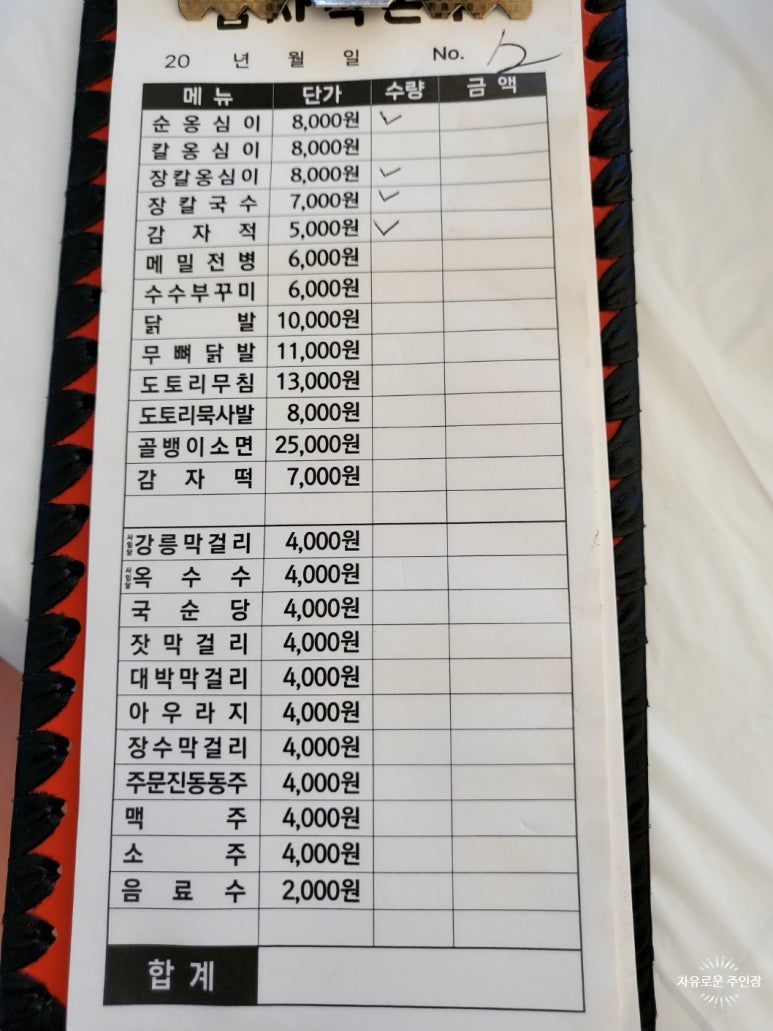 20 년 월 일 No. 12
메뉴 단가 수량 금액
순옹심이 8,000원 ✓
칼옹심이 8,000원
장칼옹심이 8,000원 ✓
장칼국수 7,000원 ✓
감자적 5,000원 ✓
메밀전병 6,000원
수수부꾸미 6,000원
닭발 10,000원
무뼈닭발 11,000원
도토리무침 13,000원
도토리묵사발 8,000원
골뱅이소면 25,000원
감자떡 7,000원
사임당 강릉막걸리 4,000원
사임당 옥수수 4,000원
국순당 4,000원
잣막걸리 4,000원
대박막걸리 4,000원
아우라지 4,000원
장수막걸리 4,000원
주문진동동주 4,000원
맥주 4,000원
소주 4,000원
음료수 2,000원
합계
자유로운 주인장